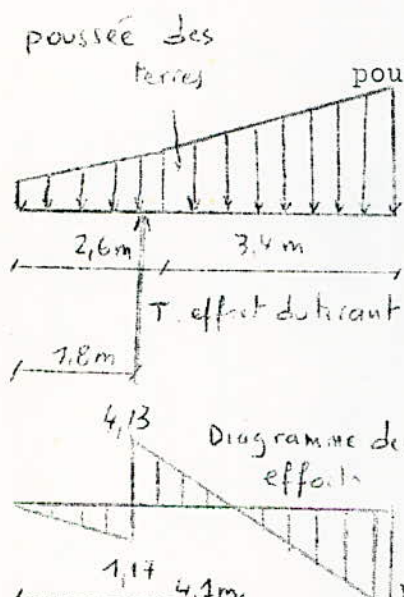 poussée des
terres
pou
2,6m
3,4m
T. effort du tirant
1.8m
4,13
Diagramme de
efforts
1,17
4,1m